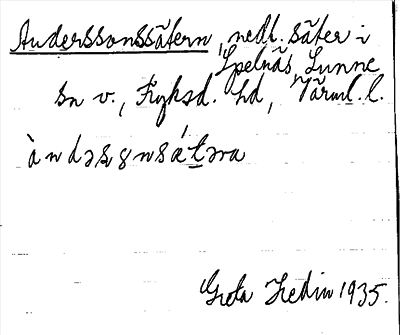 Anderssonssätern, nedl. säter i
Spelnäs, Sunne
sn v., Fryksd. hd, Värml. l.
àndəsʂnsǽtəra
Greta Hedin 1935.